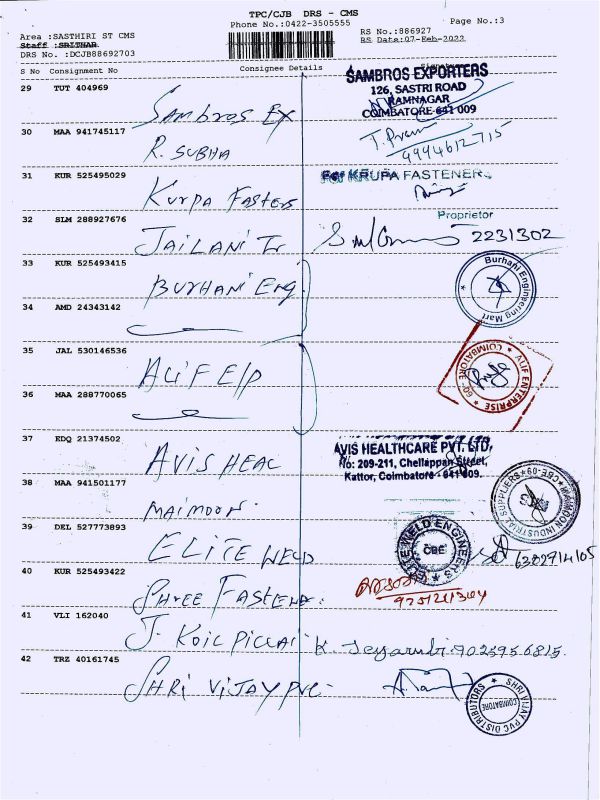 TPC/CJB DRS - CMS
Phone No.:0422-3505555
Page No.:3
Area :SASTHIRI ST CMS
RS No.:886927
Staff :SRITHAR
RS Date:07-Feb-2022
DRS No. :DCJB88692703
S No Consignment No Consignee Details
29 TUT 404969 Sambros Ex
SAMBROS EXPORTERS
126, SASTRI ROAD
RAMNAGAR
COIMBATORE-641 009
30 MAA 941745117 R. SUBHA
9994612715
31 KUR 525495029 Kurpa Fasters
For KRUPA FASTENERS
Proprietor
32 SLM 288927676 JAILANI Tr
2231302
33 KUR 525493415 BURHANI Eng.
Burhani Engineering Mart
34 AMD 24343142
35 JAL 530146536 ALIF E/P
ALIF ENTERPRISE
COIMBATORE
36 MAA 288770065
37 EDQ 21374502 AVIS HEAL
AVIS HEALTHCARE PVT. LTD,
No: 209-211, Chellappan Street,
Kattor, Coimbatore - 641 009.
38 MAA 941501177 MAIMOON
MAIMOON INDUSTRIAL SUPPLIERS
CBE-09
39 DEL 527773893 ELITE WELD
ELITE WELD ENGINEERS
CBE
6382914105
40 KUR 525493422 SHREE FASTENR.
41 VLI 162040 J. KOIL PILLAI
9025956815.
42 TRZ 40161745 SHRI VIJAY PVC
SHRI VIJAY PVC DISTRIBUTORS
COIMBATORE